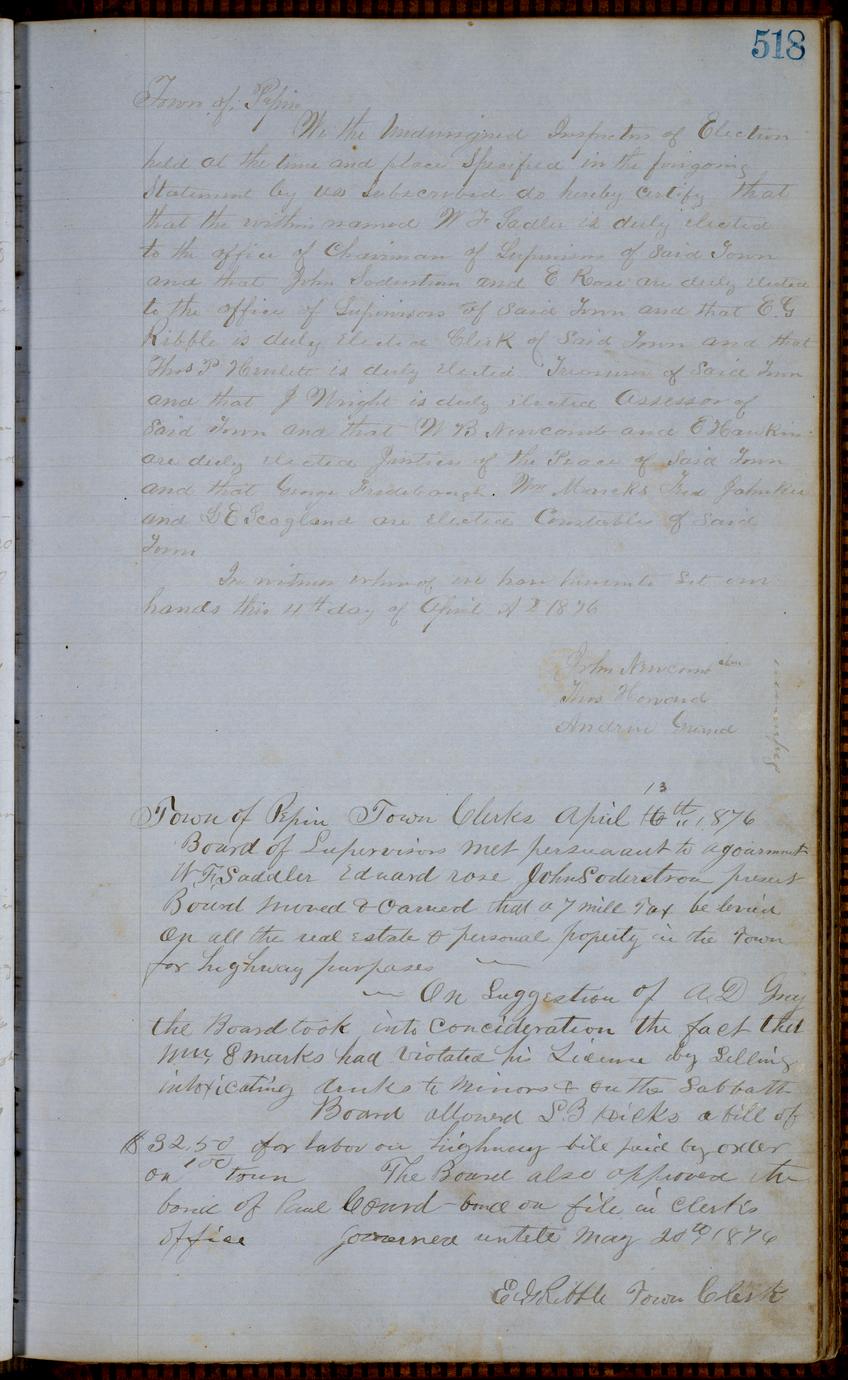 518
Town of Pepin
We the Undersigned Inspectors of Election
held at the time and place Specified in the foregoing
Statement by us Subscribed do hereby Certify that
that the within named W F Sadler is duly elected
to the office of Chairman of Supervisors of Said Town
and that John Soderstrom and E Rose are duly elected
to the office of Supervisors of Said Town and that E. G
Ribble is duly Elected Clerk of Said Town and that
Thos P Hewlett is duly elected Treasurer of Said Town
and that J Wright is duly elected Assessor of
Said Town and that W B Newcomb and E Hawkins
are duly elected Justices of the Peace of Said Town
and that George Fredebaugh. Wm Marcks Fred Jahnke
and G E Scogland are elected Constables of Said
Town
In witness whereof we have hereunto Set our
hands this 4th day of April A D 1876
John Newcomb
Thos Howard
Andrew
Inspectors
13
Town of Pepin Town Clerks April 16th 1876
Board of Supervisors met persuaant to agoarnment
W F Saddler Eduard rose John Soderstrom present
Board moved & Carried that a 7 mill Tax be levied
On all the real Estate & personal popety in the Town
for highway purpases
On Suggestion of A. D Gray
the Board took into Concideration the fact that
Wm 8 marks had violated his Licence by Selling
intoxicating drinks to minors & on the Sabbath
Board allowed S. B Hicks a bill of
$32.50 for labor on highway bill paid by order
on 100 town The Board also approved the
bond of Paul bond on file in Clerks
office untill May 20th 1876
E G Ribble Town Clerk